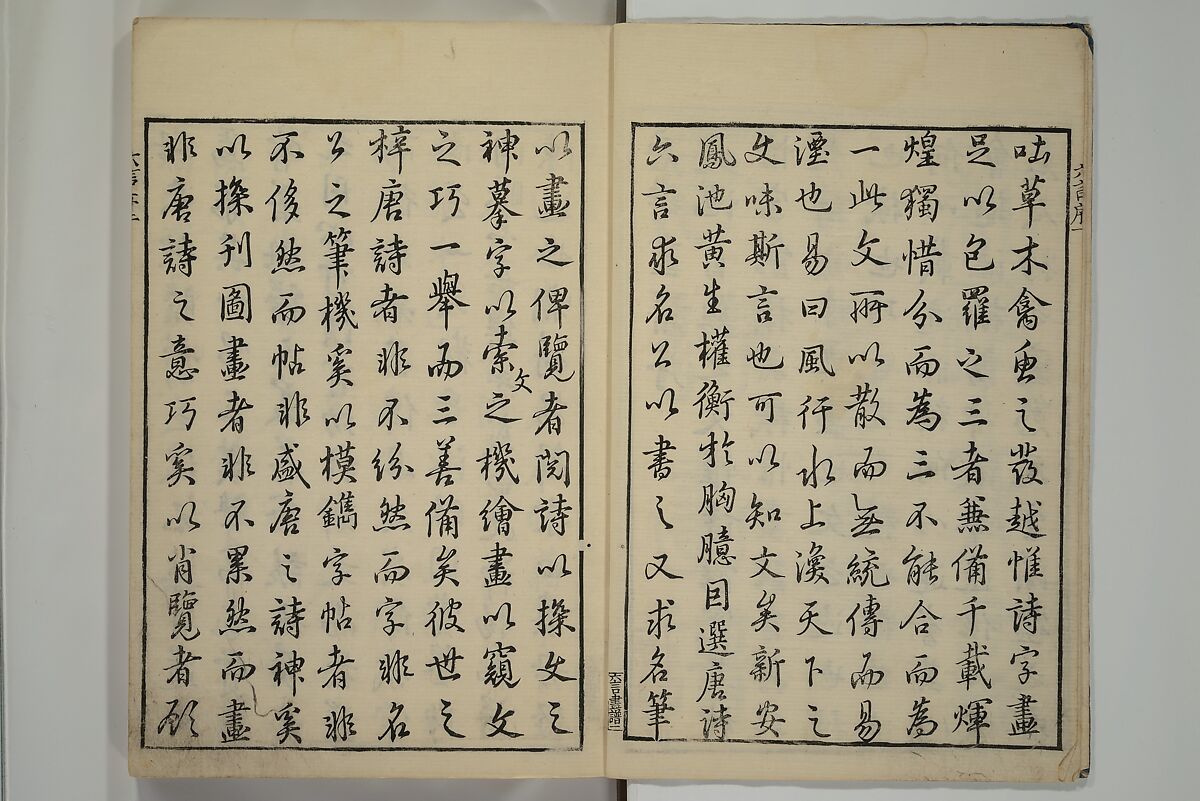 吐草木禽魚之發越惟詩字畫
足以包羅之三者兼備千載輝
煌獨惜分而為三不能合而為
一此文所以散而無統傳而易
湮也易曰風行水上渙天下之
文味斯言也可以知文矣新安
鳳池黃生權衡於胸臆因選唐詩
六言求名公以書之又求名筆
以畫之俾覽者閱詩以探文之
神摹字以索文之機繪畫以窺文
之巧一舉而三善備矣彼世之
梓唐詩者非不紛然而字非名
公之筆機奚以模鐫字帖者非
不侈然而帖非盛唐之詩神奚
以探刊圖畫者非不累然而畫
非唐詩之意巧奚以肖覽者願
六言畫譜